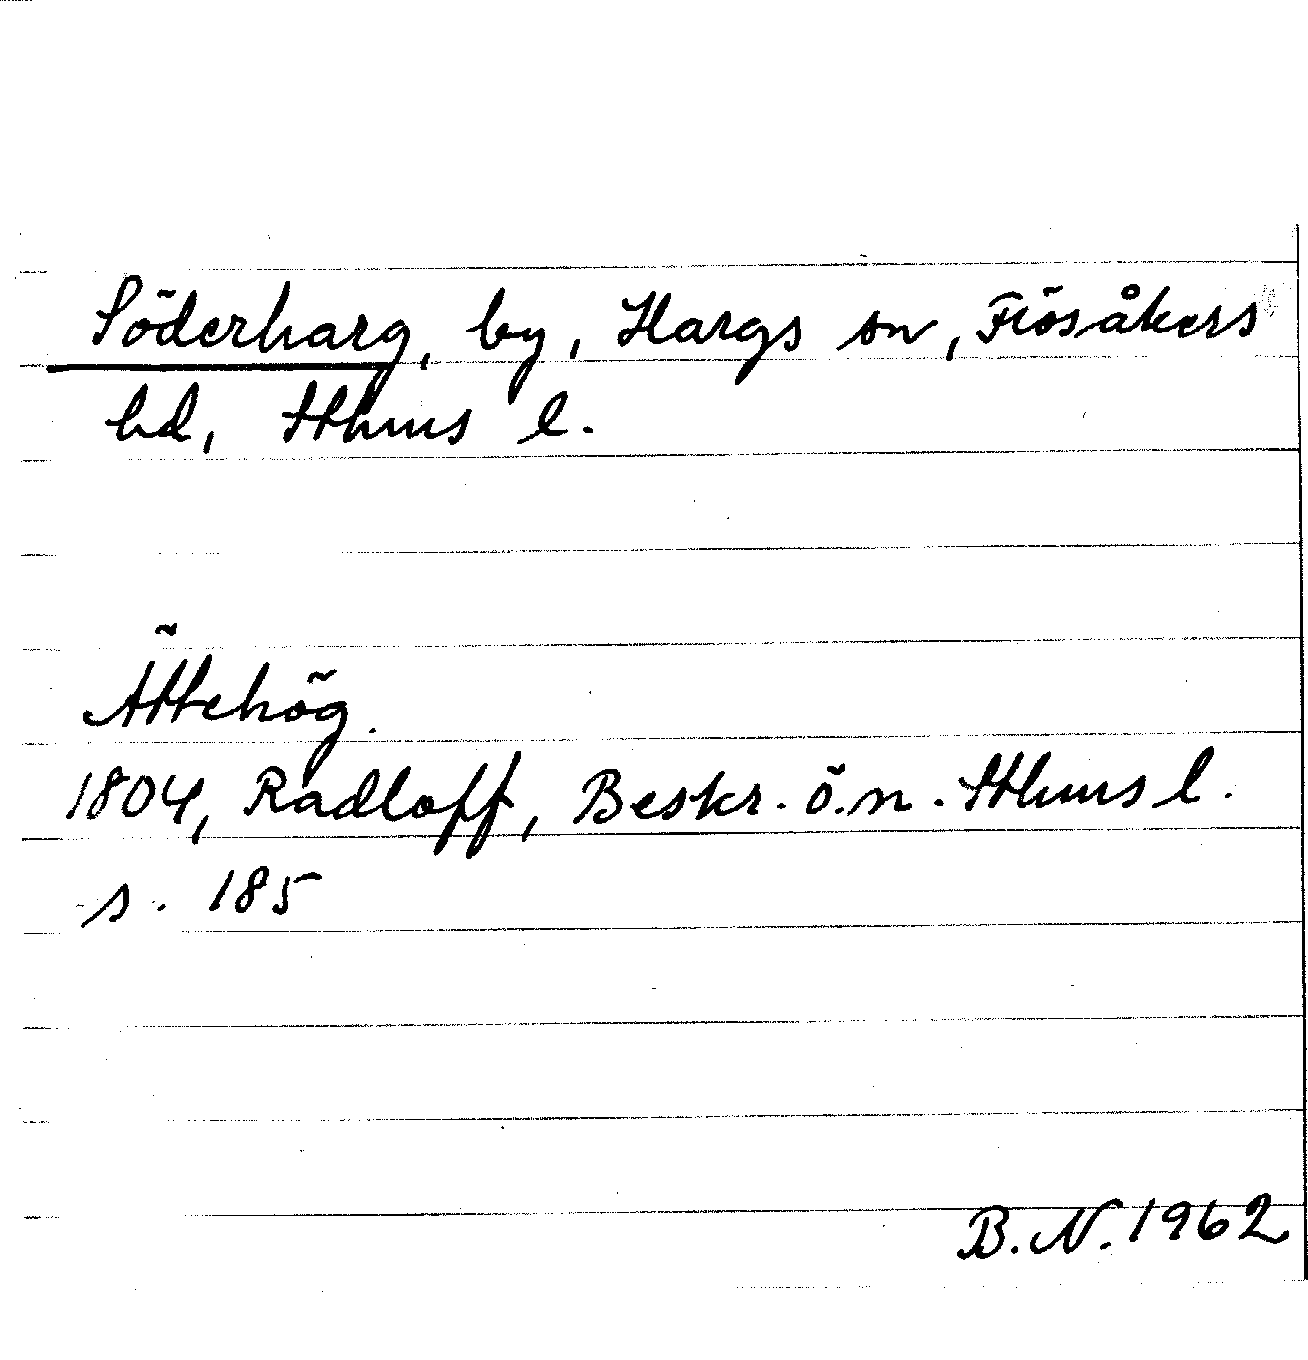 Söderharg, by, Hargs sn, Frösåkers
hd, Sthms l.
Ättehög.
1804, Radloff, Beskr. ö. n. Sthms l.
s. 185
B.N. 1962